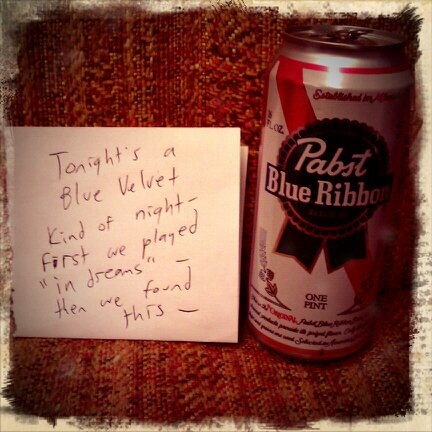 Tonight's a
Blue Velvet
Kind of night-
First we played
"in dreams" -
then we found
this -
Established in
FL. OZ.
Pabst
Blue Ribbon
BEER
ONE
PINT